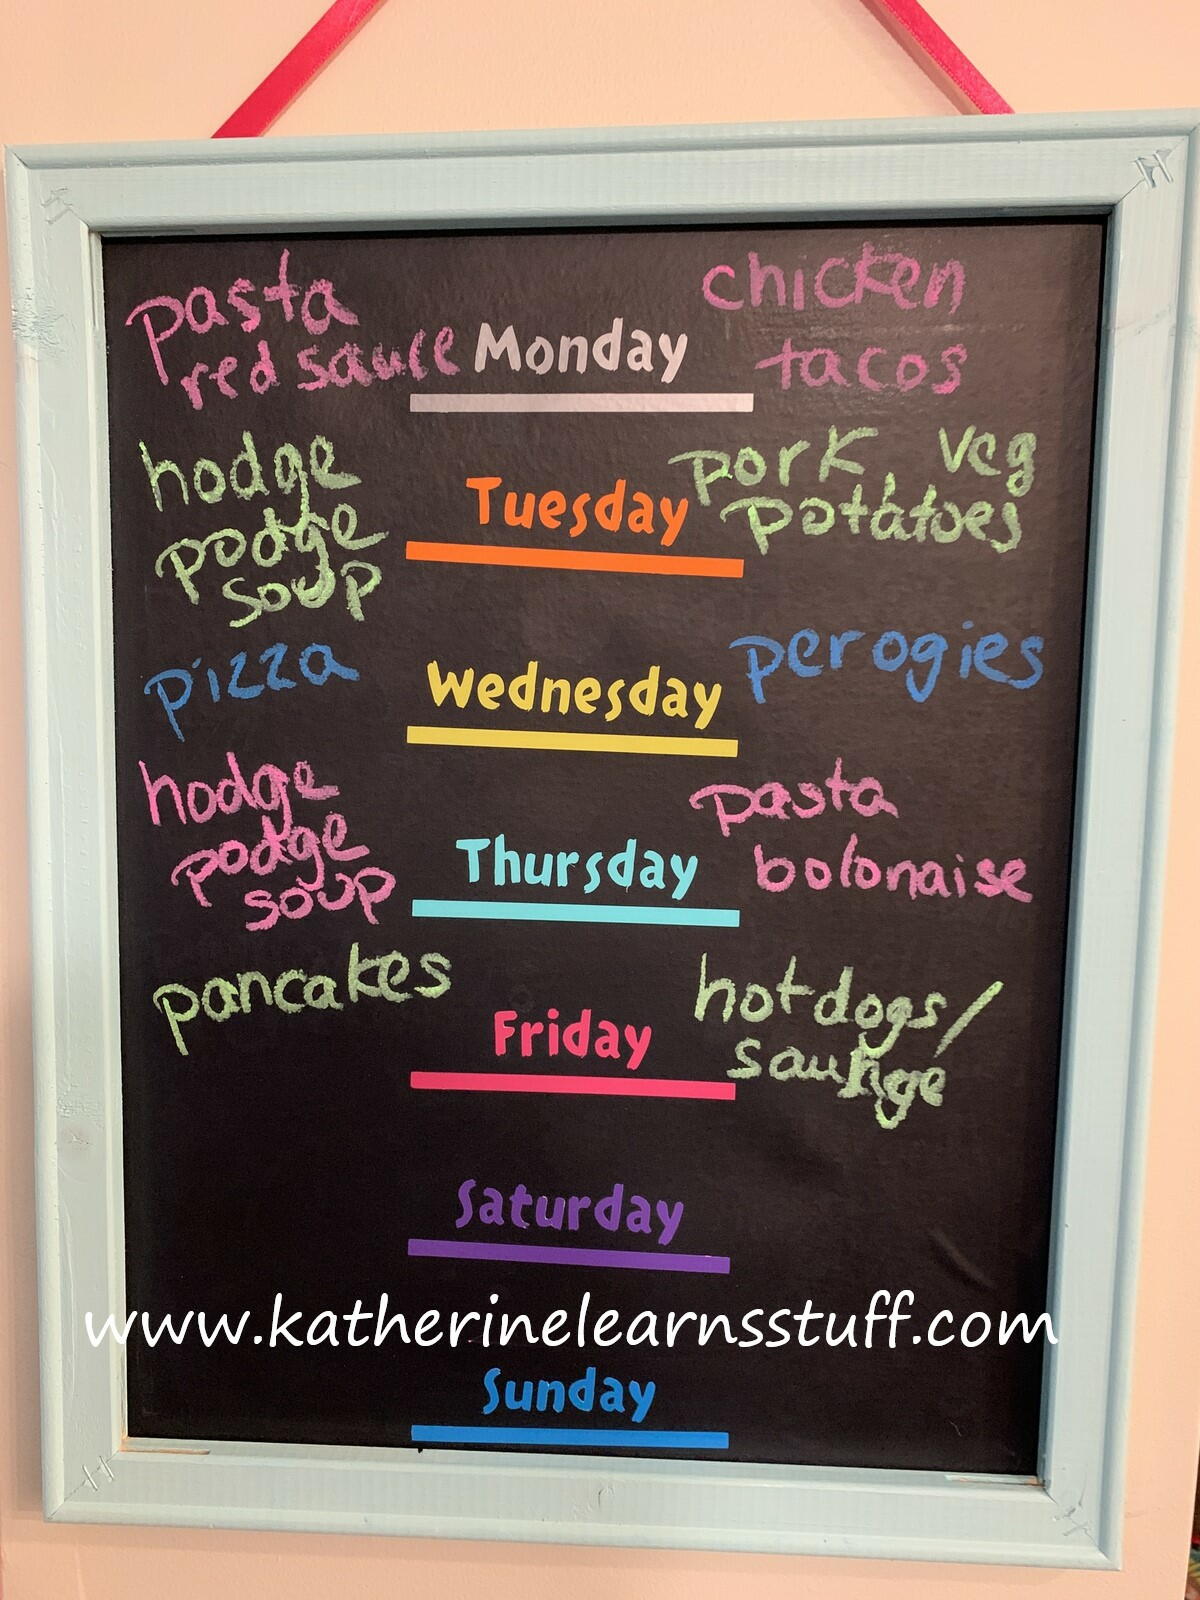 pasta
red sauce
Monday
chicken
tacos
hodge
podge
soup
Tuesday
pork, veg
potatoes
pizza
Wednesday
perogies
hodge
podge
soup
Thursday
pasta
bolonaise
pancakes
Friday
hotdogs/
saunge
Saturday
www.katherinelearnsstuff.com
Sunday